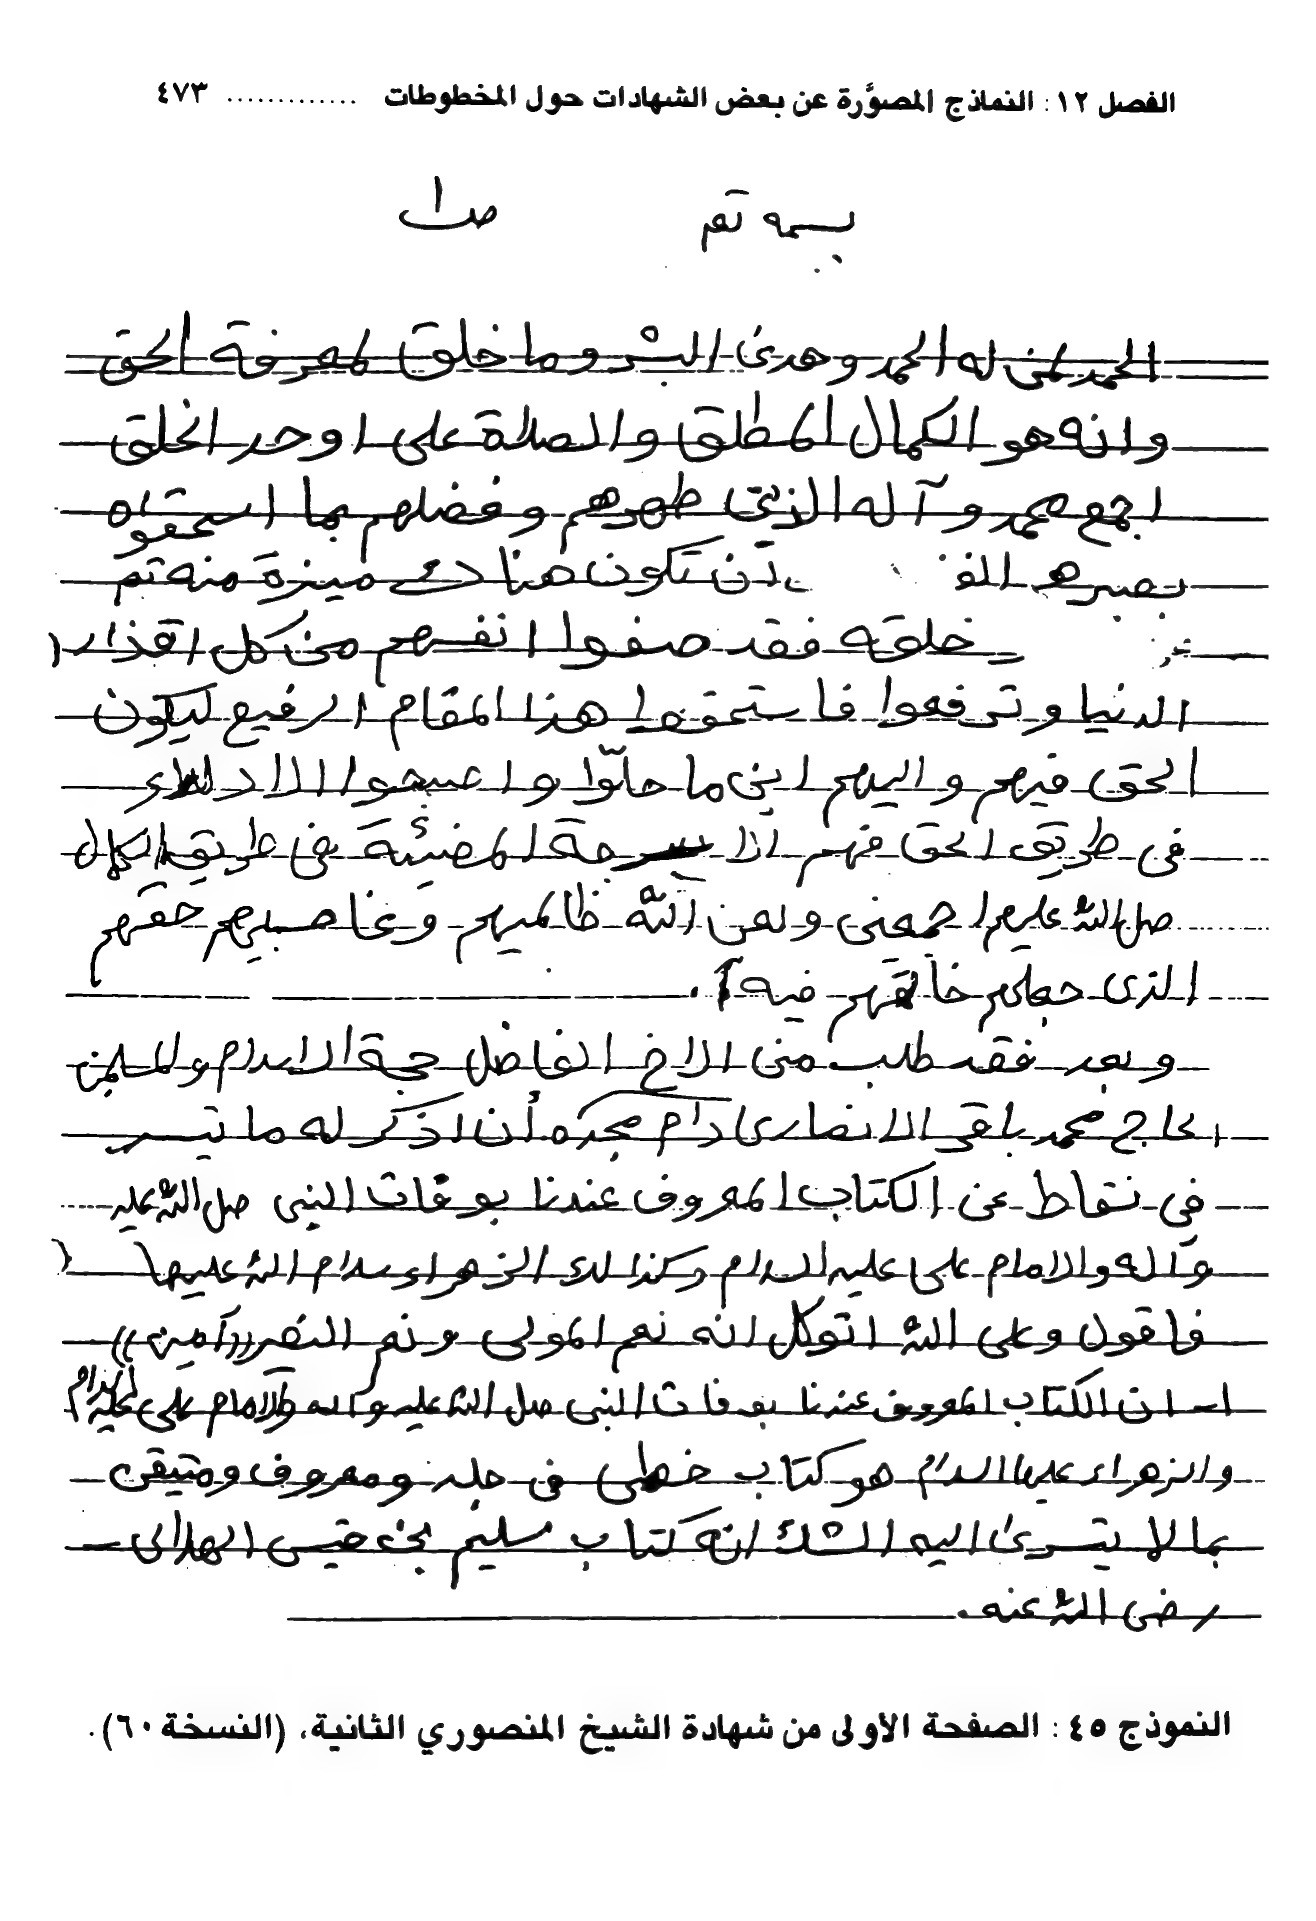 الفصل ١٢ : النماذج المصوَّرة عن بعض الشهادات حول المخطوطات ............. ٤٧٣
بسمه تعم ص١
الحمد لمن له الحمد وهدى البشر وما خلق لمعرفة الحق
وانه هو الكمال المطلق والصلاة على اوحد الخلق
اجمع محمد وآله الذين طهرهم وفضلهم بما استحقوه
بصبرهم تكون هنادك ميزة منه تعم
خلقه فقد صفوا انفسهم من كل اقذار
الدنيا وترفعوا فاستحقوا هذا المقام الرفيع ليكون
الحق فيهم واليهم اين ما حلّوا واصبحوا
في طريق الحق فهم المضيئة في طريق الكمال
صل الله عليهم اجمعين ولعن الله ظالميهم وغاصبيهم حقهم
الذي جعلهم خالقهم فيه .
وبعد فقد طلب مني الاخ الفاضل حجة الاسلام والمسلمين
الحاج محمد باقر الانصاري دام مجده أن اذكر له ما تيسر
في نقاط عن الكتاب المعروف عندنا بوفات النبي صل الله عليه
وآله والامام علي عليه السلام وكذالك الزهراء سلام الله عليها
فاقول وعلى الله اتوكل انه نعم المولى ونعم النصير ((آمين))
١ـ ان الكتاب المعروف عندنا بوفات النبي صل الله عليه وآله والامام علي عليه السلام
والزهراء عليها السلام هو كتاب خطي في جلد ومعروف ومتيقن
بما لا يتسرى اليه الشك انه كتاب سليم بن قيس الهلالي
رضي الله عنه .
النموذج ٤٥ : الصفحة الأولى من شهادة الشيخ المنصوري الثانية، (النسخة ٦٠).